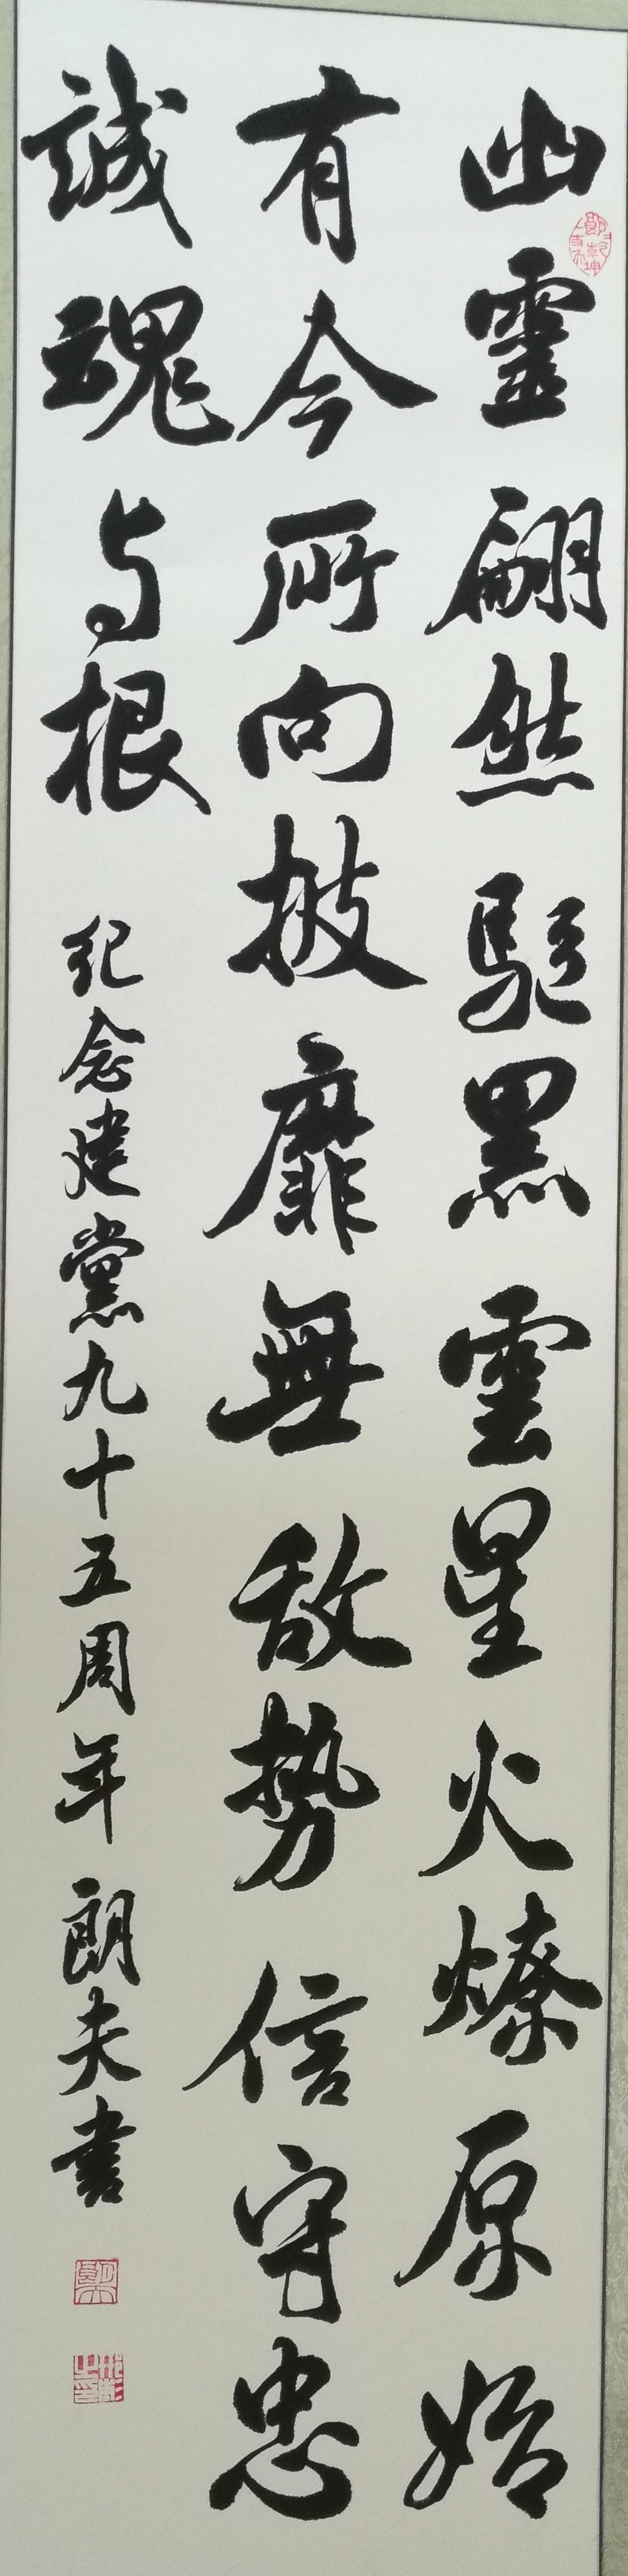 幽靈翩然駆黑雲星火燎原始
有今所向披靡無敌势信守忠
誠魂与根
纪念建黨九十五周年 朗夫書